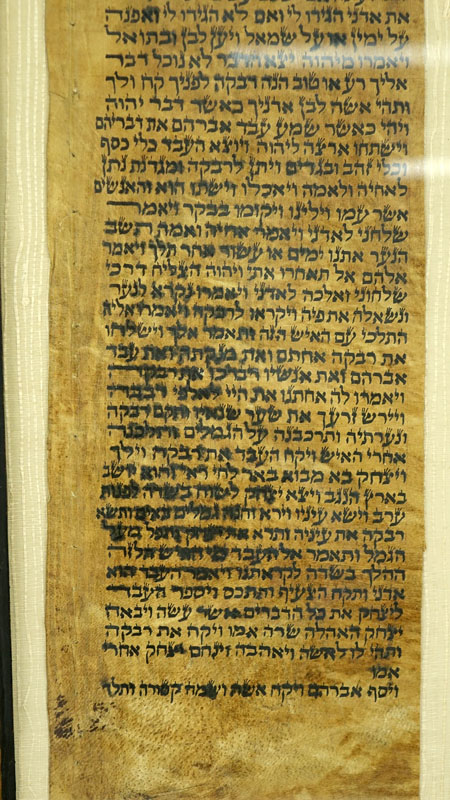 את אדני הגידו לי ואם לא הגידו לי ואפנה
על ימין או על שמאל ויען לבן ובתואל
ויאמרו מיהוה יצא הדבר לא נוכל דבר
אליך רע או טוב הנה רבקה לפניך קח ולך
ותהי אשה לבן אדניך כאשר דבר יהוה
ויהי כאשר שמע עבד אברהם את דבריהם
וישתחו ארצה ליהוה ויוצא העבד כלי כסף
וכלי זהב ובגדים ויתן לרבקה ומגדנת נתן
לאחיה ולאמה ויאכלו וישתו הוא והאנשים
אשר עמו וילינו ויקומו בבקר ויאמר
שלחני לאדני ויאמר אחיה ואמה תשב
הנער אתנו ימים או עשור אחר תלך ויאמר
אלהם אל תאחרו אתי ויהוה הצליח דרכי
שלחוני ואלכה לאדני ויאמרו נקרא לנער
ונשאלה את פיה ויקראו לרבקה ויאמרו אליה
התלכי עם האיש הזה ותאמר אלך וישלחו
את רבקה אחתם ואת מנקתה ואת עבד
אברהם ואת אנשיו ויברכו את רבקה
ויאמרו לה אחתנו את היי לאלפי רבבה
ויירש זרעך את שער שנאיו ותקם רבקה
ונערתיה ותרכבנה על הגמלים ותלכנה
אחרי האיש ויקח העבד את רבקה וילך
ויצחק בא מבוא באר לחי ראי והוא יושב
בארץ הנגב ויצא יצחק לשוח בשדה לפנות
ערב וישא עיניו וירא והנה גמלים באים ותשא
רבקה את עיניה ותרא את יצחק ותפל מעל
הגמל ותאמר אל העבד מי האיש הלזה
ההלך בשדה לקראתנו ויאמר העבד הוא
אדני ותקח הצעיף ותתכס ויספר העבד
ליצחק את כל הדברים אשר עשה ויבאה
יצחק האהלה שרה אמו ויקח את רבקה
ותהי לו לאשה ויאהבה וינחם יצחק אחרי
אמו
ויסף אברהם ויקח אשה ושמה קטורה ותלד